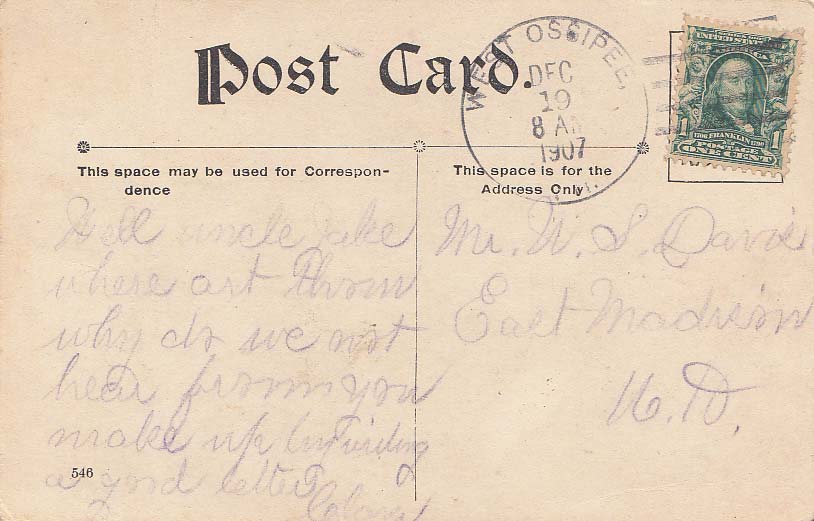 Post Card.
WEST OSSIPEE,
DEC
19
8 AM
1907
N.H.
UNITED STATES
1706 FRANKLIN 1790
1 1
POSTAGE
ONE CENT
This space may be used for Correspon-
dence
Well uncle Jake
where art thou
why do we not
hear from you
make up by
a good letter
546
This space is for the
Address Only.
Mr. W. S. Davis
East Madison
N.H.